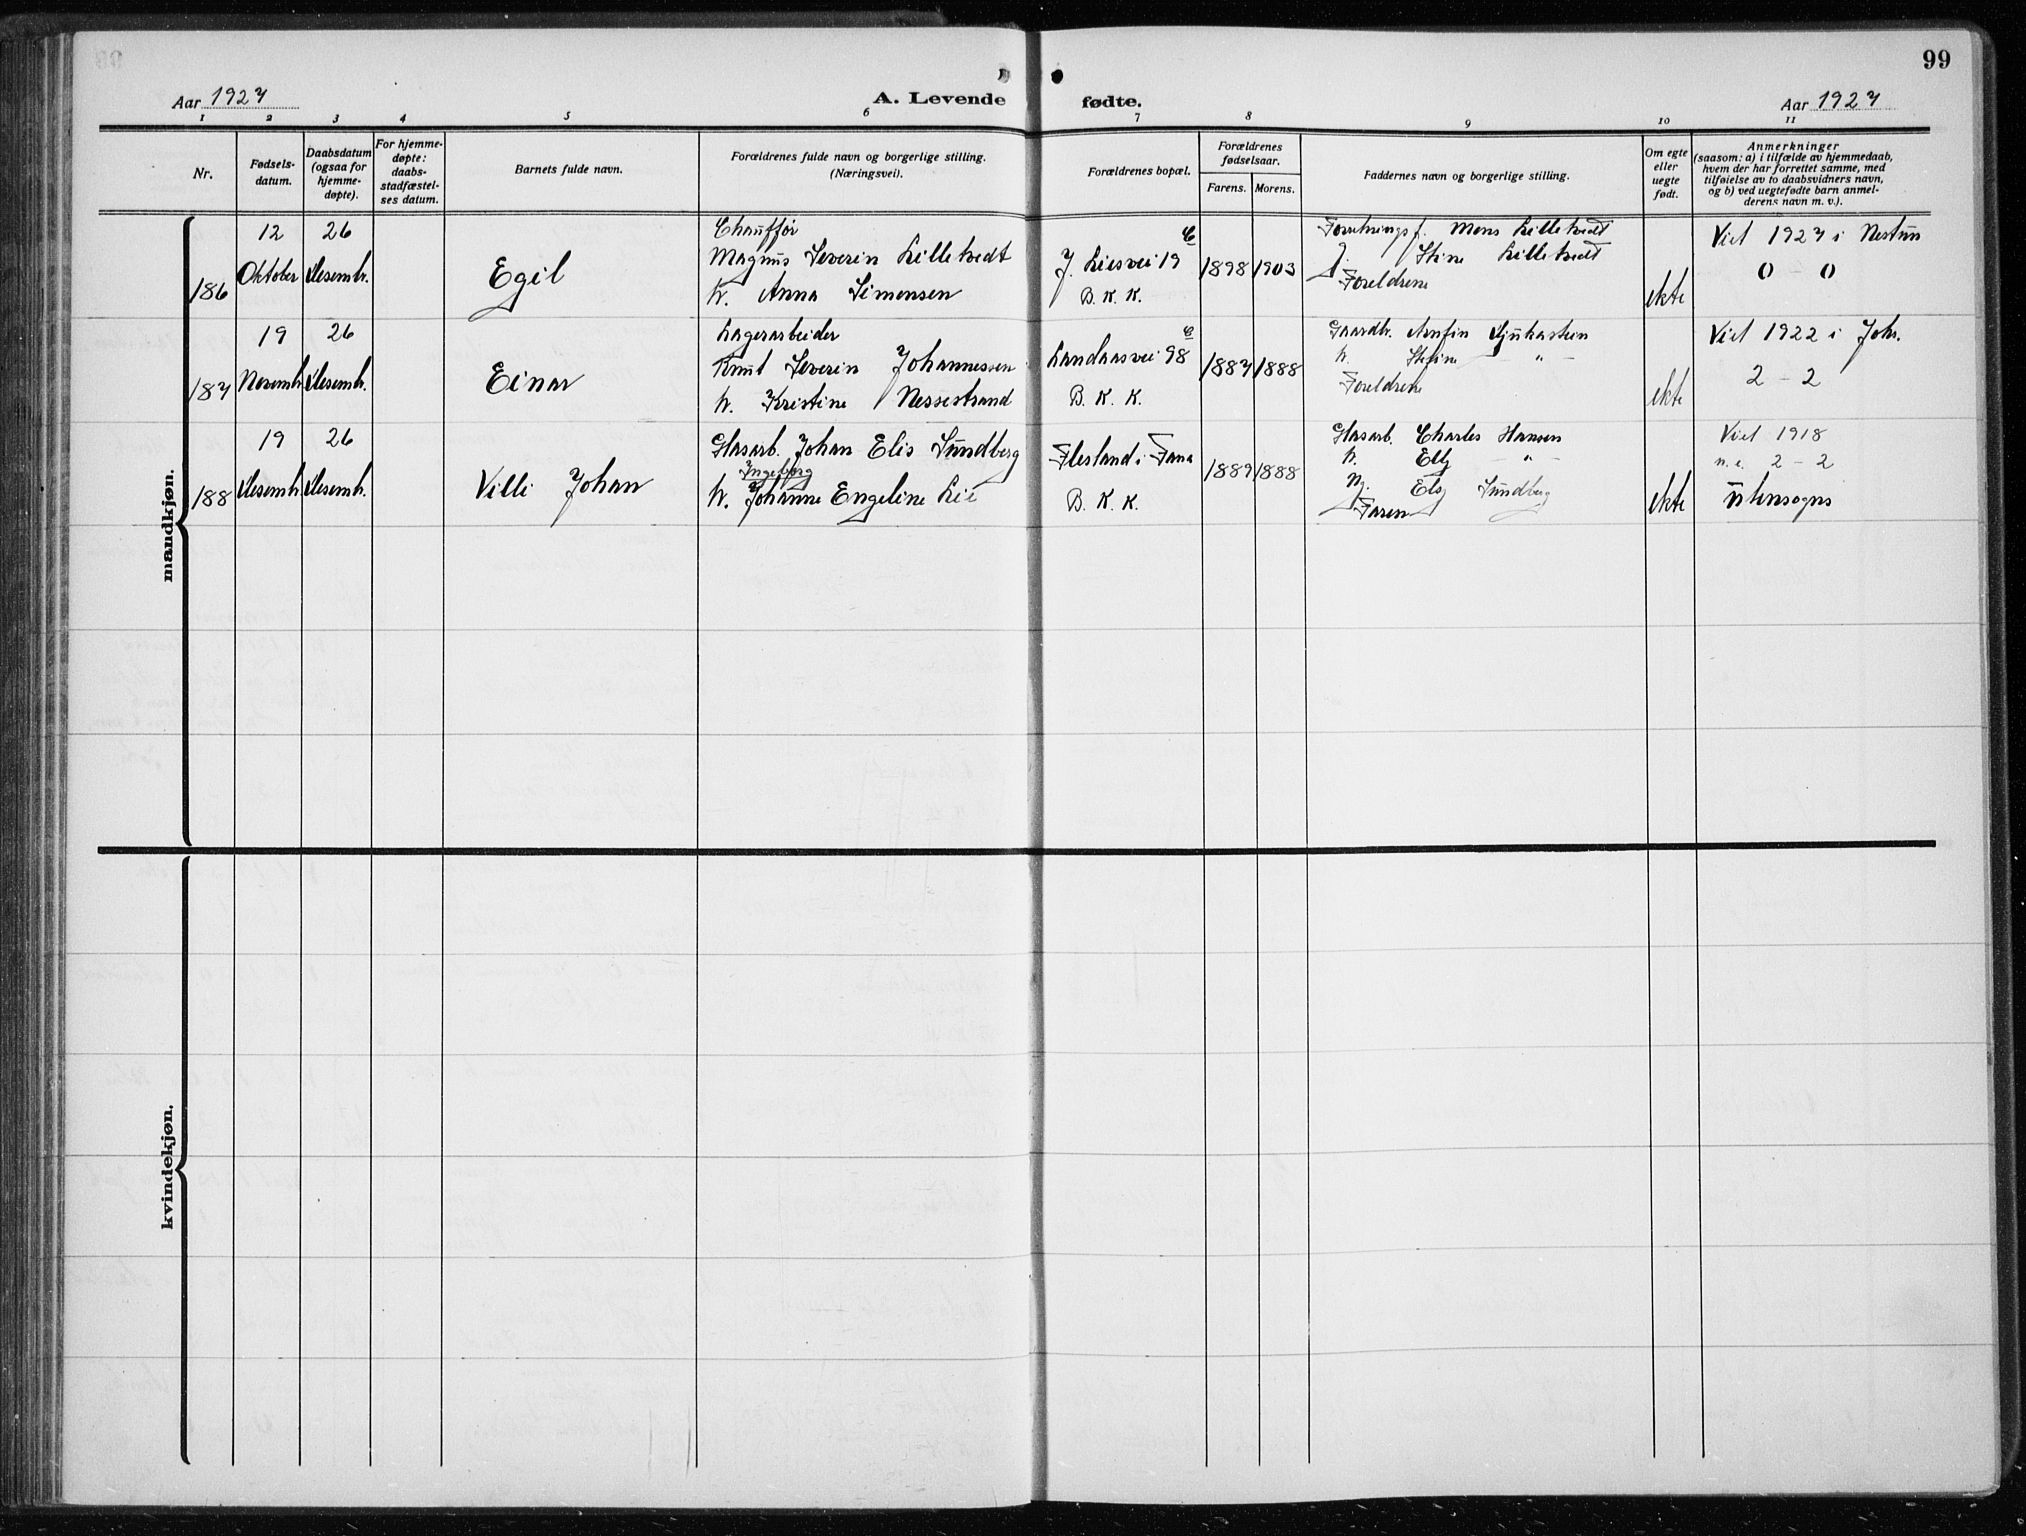 99
Aar 1927
A. Levende fødte.
Aar 1927
1 2 3 4 5 6 7 8 9 10 11
Nr.
Fødsels-
datum.
Daabsdatum
(ogsaa for
hjemme-
døpte).
For hjemme-
døpte:
daabs-
stadfæstel-
ses datum.
Barnets fulde navn.
Forældrenes fulde navn og borgerlige stilling.
(Næringsvei).
Forældrenes bopæl.
Forældrenes
fødselsaar.
Farens. Morens.
Faddernes navn og borgerlige stilling.
Om egte
eller
uegte
født.
Anmerkninger
(saasom: a) i tilfælde av hjemmedaab,
hvem der har forrettet samme, med
tilføielse av to daabsvidners navn,
og b) ved uegtefødte barn anmel-
derens navn m. v.).
mandkjøn.
186
12
Oktober
26
Desembr.
Egil
Chauffør
Magnus Severin Lilletvedt
h. Anna Simonsen
J. Liesvei 19 C
B. K. K.
1898 1903
Forretningsf. Mons Lilletvedt
J. Stine Lilletvedt
Foreldrene
ekte
Viet 1927 i Nestun
0 - 0
187
19
Novembr.
26
Desembr.
Einar
Lagerarbeider
Knut Severin Johannessen
h. Kristine Nessestrand
Landaasvei 98 C
B. K. K.
1887 1888
Gaardbr. Arnfin
h. Stefine — " —
Foreldrene
ekte
Viet 1922 i Johs.
2 - 2
188
19
Desembr.
26
Desembr.
Villi Johan
Glasarb. Johan Elis Sundberg
Ingeborg
h. Johanne Engeline Lie
Flesland i Fana
B. K. K.
1889 1888
Glasarb. Charles Hansen
h. Elly — " —
Elsy Sundberg
Faren
ekte
Viet 1918
n. e. 2 - 2
Utensogns
kvindekjøn.